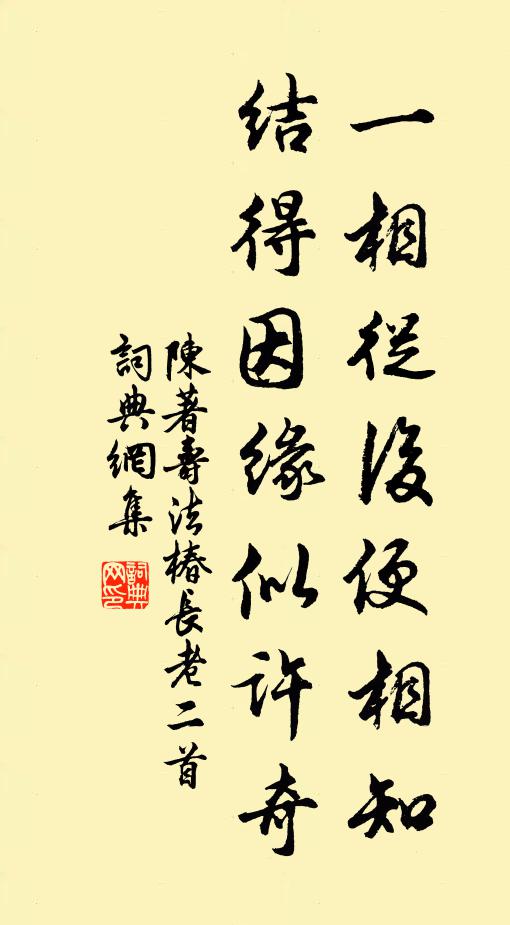 一相從後便相知
結得因緣似許奇
陳著壽法椿長老二首
詞典網集
詞典网印